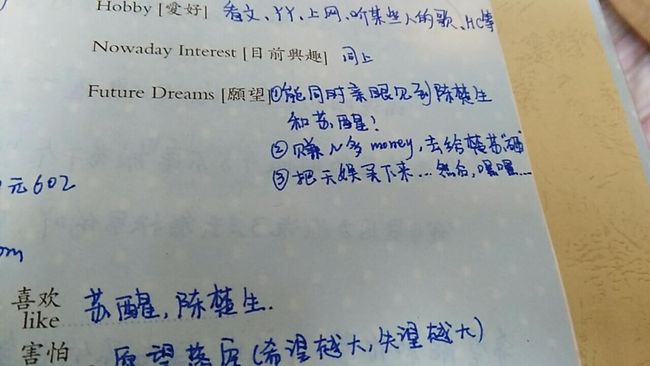 Hobby [愛好] 看文、丫丫、上网、听某些人的歌、HC等
Nowaday Interest [目前興趣] 同上
Future Dreams [願望] ①能同时亲眼见到陈楚生
和苏醒!
②赚N多money,去给楚苏"砸"
③把天娱买下来…然后,嘿嘿…
元602
om
喜欢 苏醒,陈楚生.
like
害怕 愿望落空(希望越大,失望越大)